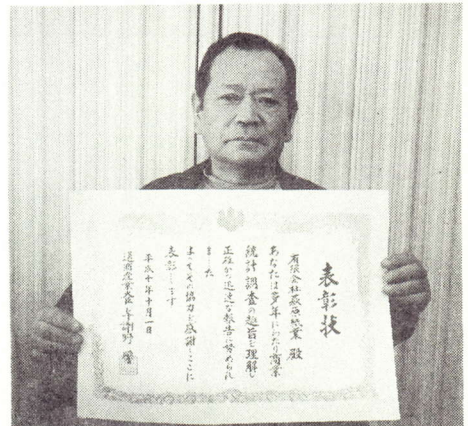 表彰状
有限会社萩原興業 殿
あなたは多年にわたり商業
統計調査の趣旨を理解し
正確かつ迅速な報告に努められ
ました
よってその協力を感謝しここに
表彰します
平成十年十月一日
通商産業大臣 与謝野 馨